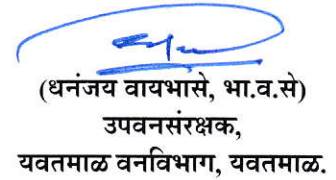 (धनंजय वायभासे, भा.व.से)
उपवनसंरक्षक,
यवतमाळ वनविभाग, यवतमाळ.